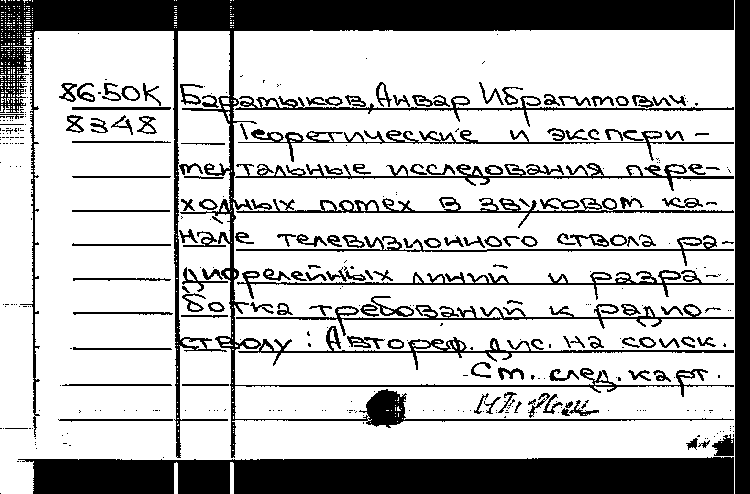 86-50К Баратыков, Анвар Ибрагимович.
8348 Теоретические и экспери-
ментальные исследования пере-
ходных помех в звуковом ка-
нале телевизионного ствола ра-
диорелейных линий и разра-
ботка требований к радио-
стволу: Автореф. дис. на соиск.
См. след. карт.